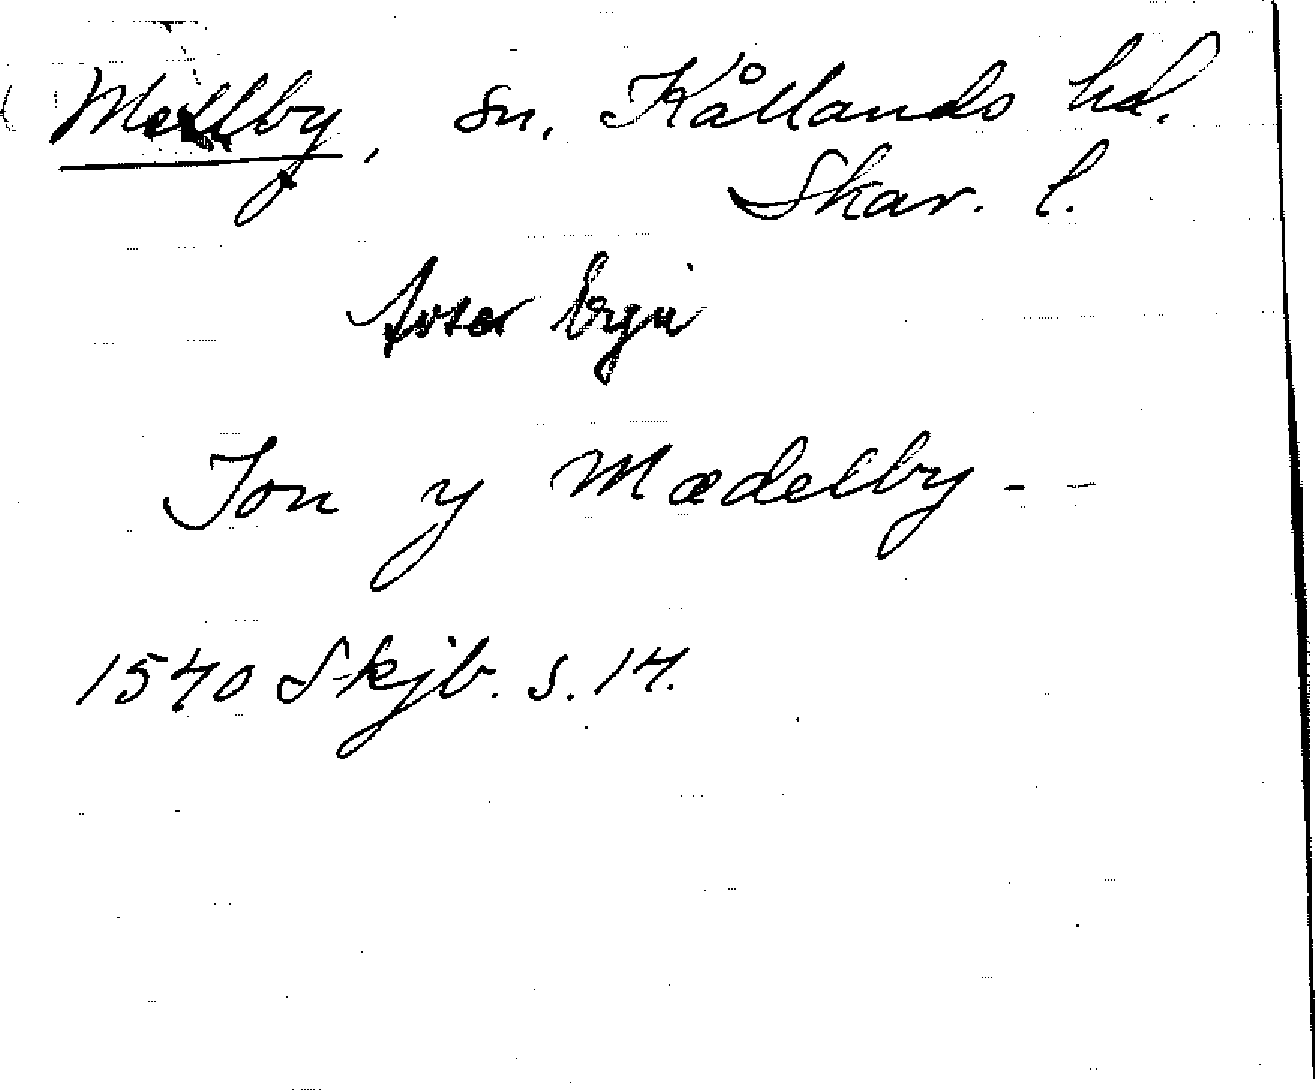 Mellby, sn. Kållands hd.
Skar. l.
Jon y Mædelby - -
1540 Skjb. s. 14.